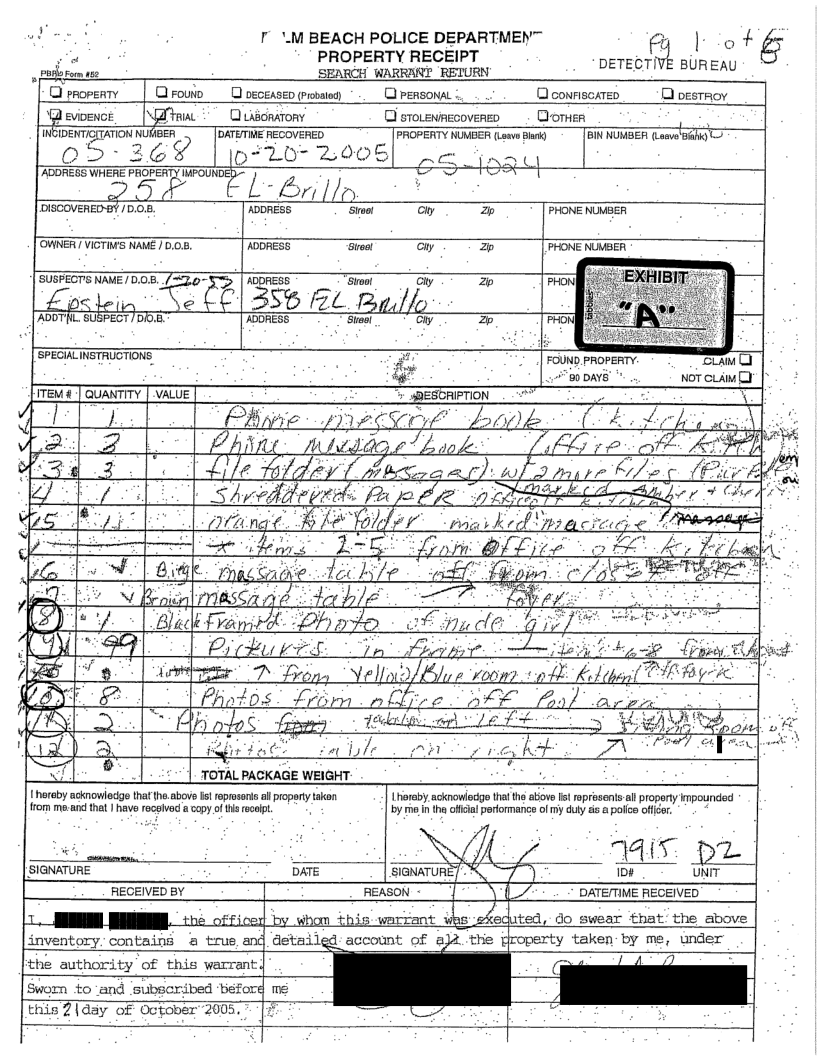 LM BEACH POLICE DEPARTMENT
PROPERTY RECEIPT
SEARCH WARRANT RETURN
Pg 1 of 6
DETECTIVE BUREAU
PBPD Form #52
PROPERTY FOUND DECEASED (Probated) PERSONAL CONFISCATED DESTROY
EVIDENCE TRIAL LABORATORY STOLEN/RECOVERED OTHER
INCIDENT/CITATION NUMBER DATE/TIME RECOVERED PROPERTY NUMBER (Leave Blank) BIN NUMBER (Leave Blank)
05-368 10-20-2005 05-1024
ADDRESS WHERE PROPERTY IMPOUNDED
258 EL-Brillo
DISCOVERED BY / D.O.B. ADDRESS Street City Zip PHONE NUMBER
OWNER / VICTIM'S NAME / D.O.B. ADDRESS Street City Zip PHONE NUMBER
SUSPECT'S NAME / D.O.B. 1-20-53 ADDRESS Street City Zip PHON
Epstein Jeff 358 EL Brillo
EXHIBIT
"A"
ADDT'NL. SUSPECT / D.O.B. ADDRESS Street City Zip PHON
SPECIAL INSTRUCTIONS FOUND PROPERTY CLAIM
90 DAYS NOT CLAIM
ITEM # QUANTITY VALUE DESCRIPTION
1 1 Phone message book (kitchen)
2 3 Phone message book (office off Kitch
3 3 file folder (massages) w/2 more files
marked Amber + Cheri
4 1 Shreddered PAPER office kitchen
5 1 orange file folder marked massage
* items 2-5 from office off kitchen
6 Biege massage table from closet
7 Brown massage table foyer
8 1 Black framed photo of nude girl
9 Pictures in frame items 6-8 from
↑ from Yellow/Blue room off Kitchen
8 Photos from office off Pool area
2 Photos table on left Room off
12 2 Photos table on right ↗ Pool area
TOTAL PACKAGE WEIGHT
I hereby acknowledge that the above list represents all property taken
from me and that I have received a copy of this receipt.
I hereby acknowledge that the above list represents all property impounded
by me in the official performance of my duty as a police officer.
7915 D2
SIGNATURE DATE SIGNATURE ID# UNIT
RECEIVED BY REASON DATE/TIME RECEIVED
I, , the officer by whom this warrant was executed, do swear that the above
inventory contains a true and detailed account of all the property taken by me, under
the authority of this warrant.
Sworn to and subscribed before me
this 21 day of October 2005.